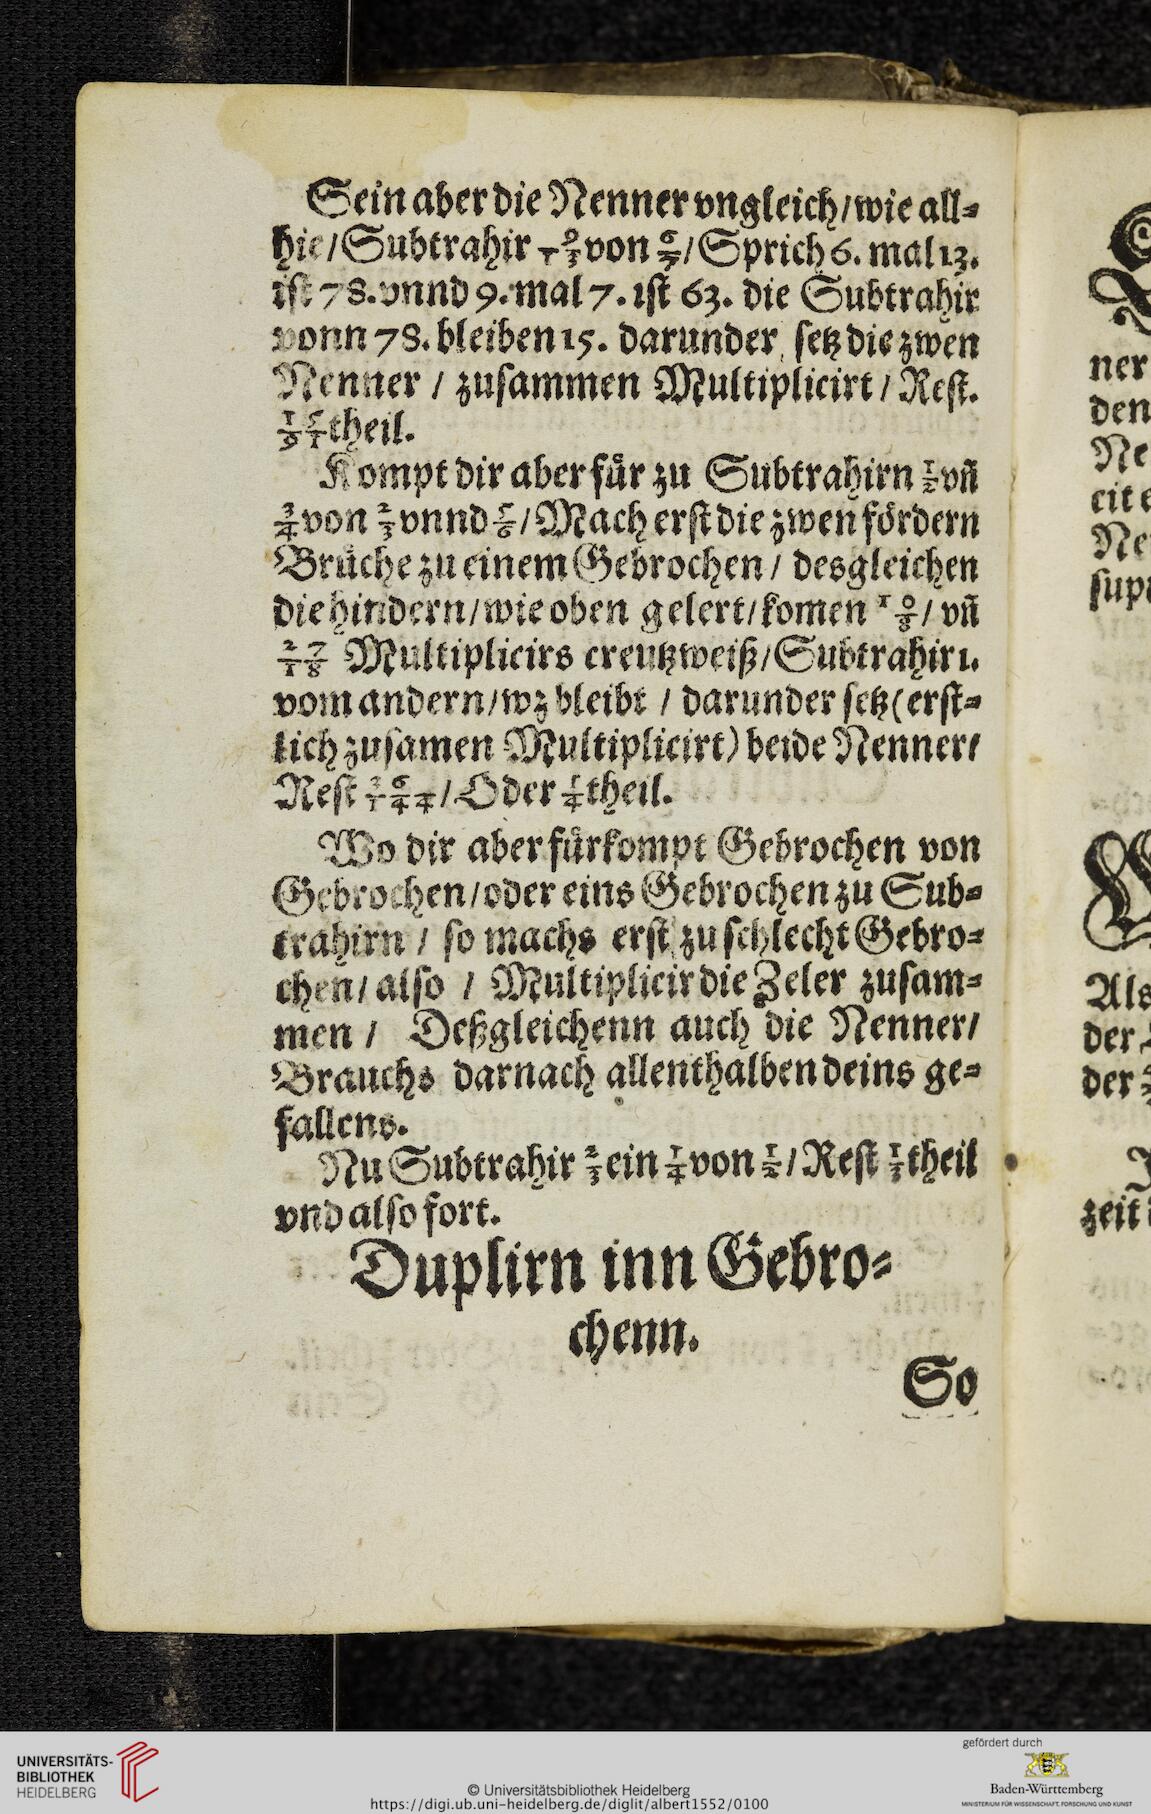 Sein aber die Nenner vngleich/wie all⸗
hie/Subtrahir 9/13 von 6/7/Sprich 6. mal 13.
ist 78. vnnd 9. mal 7. ist 63. die Subtrahir
vonn 78. bleiben 15. darunder setz die zwen
Nenner / zusammen Multiplicirt / Rest.
15/91 theil.
Kompt dir aber für zu Subtrahirn 1/2 vñ
3/4 von 2/3 vnnd 5/6/Mach erst die zwen fördern
Brüche zu einem Gebrochen / desgleichen
die hindern/wie oben gelert/komen 10/8/ vñ
27/18 Multiplicirs creutzweiß/Subtrahir 1.
vom andern/wz bleibt / darunder setz (erst⸗
lich zusamen Multiplicirt) beide Nenner/
Rest 36/144/Oder 1/4 theil.
Wo dir aber fürkompt Gebrochen von
Gebrochen/oder eins Gebrochen zu Sub⸗
trahirn / so machs erst zu schlecht Gebro⸗
chen/ also / Multiplicir die Zeler zusam⸗
men / Deßgleichenn auch die Nenner/
Brauchs darnach allenthalben deins ge⸗
fallens.
Nu Subtrahir 2/3 ein 1/4 von 1/2/Rest 1/3 theil
vnd also fort.
Duplirn inn Gebro⸗
chenn.
So
ner
den
Ne
cit e
Ne
supt
Als
der
der
zeit
UNIVERSITÄTS-
BIBLIOTHEK
HEIDELBERG
© Universitätsbibliothek Heidelberg
https://digi.ub.uni-heidelberg.de/diglit/albert1552/0100
gefördert durch
Baden-Württemberg
MINISTERIUM FÜR WISSENSCHAFT, FORSCHUNG UND KUNST